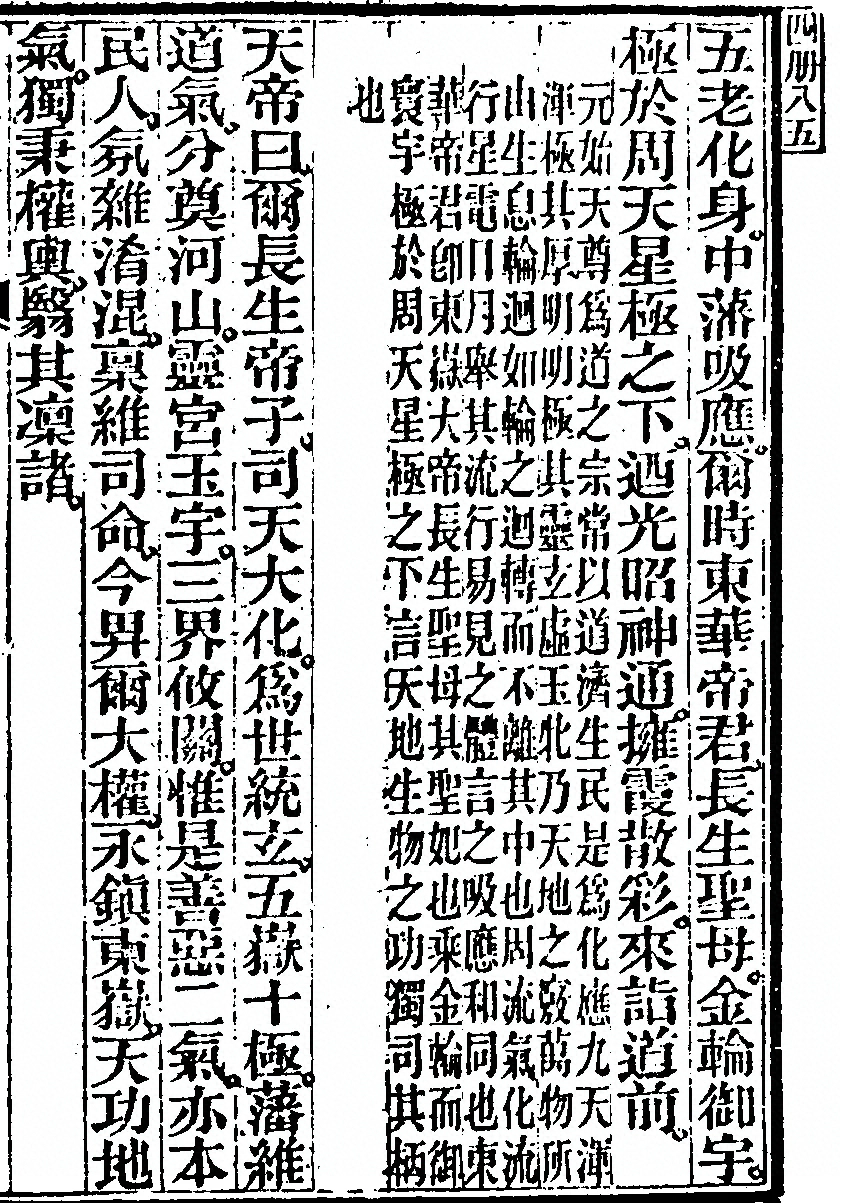 四册八五
五老化身。中藩吸應。爾時東華帝君、長生聖母。金輪御宇。
極於周天星極之下、迺光昭神通。擁霞散彩。來詣道前、
元始天尊爲道之宗常以道濟生民是爲化應九天渾
渾極其厚明明極其靈立虛玉牝乃天地之竅萬物所
由生息輪迴如輪之迴轉而不離其中也周流氣化流
行星電日月舉其流行易見之體言之吸應和同也東
華帝君卽東嶽大帝長生聖母其聖妃也乘金輪而御
寰宇極於周天星極之下言天地生物之功獨司其柄
也
天帝曰、爾長生帝子、司天大化。爲世統立、五嶽十極。藩維
道氣、分奠河山。靈宮玉宇。三界攸關。惟是善惡二氣。亦本
民人、氛雜淆混。稟維司命、今畀爾大權、永鎮東嶽、天功地
氣。獨秉權輿、翳其凜諸、